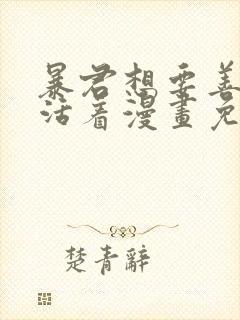 暴君想要善
活着漫畫免
楚青辭